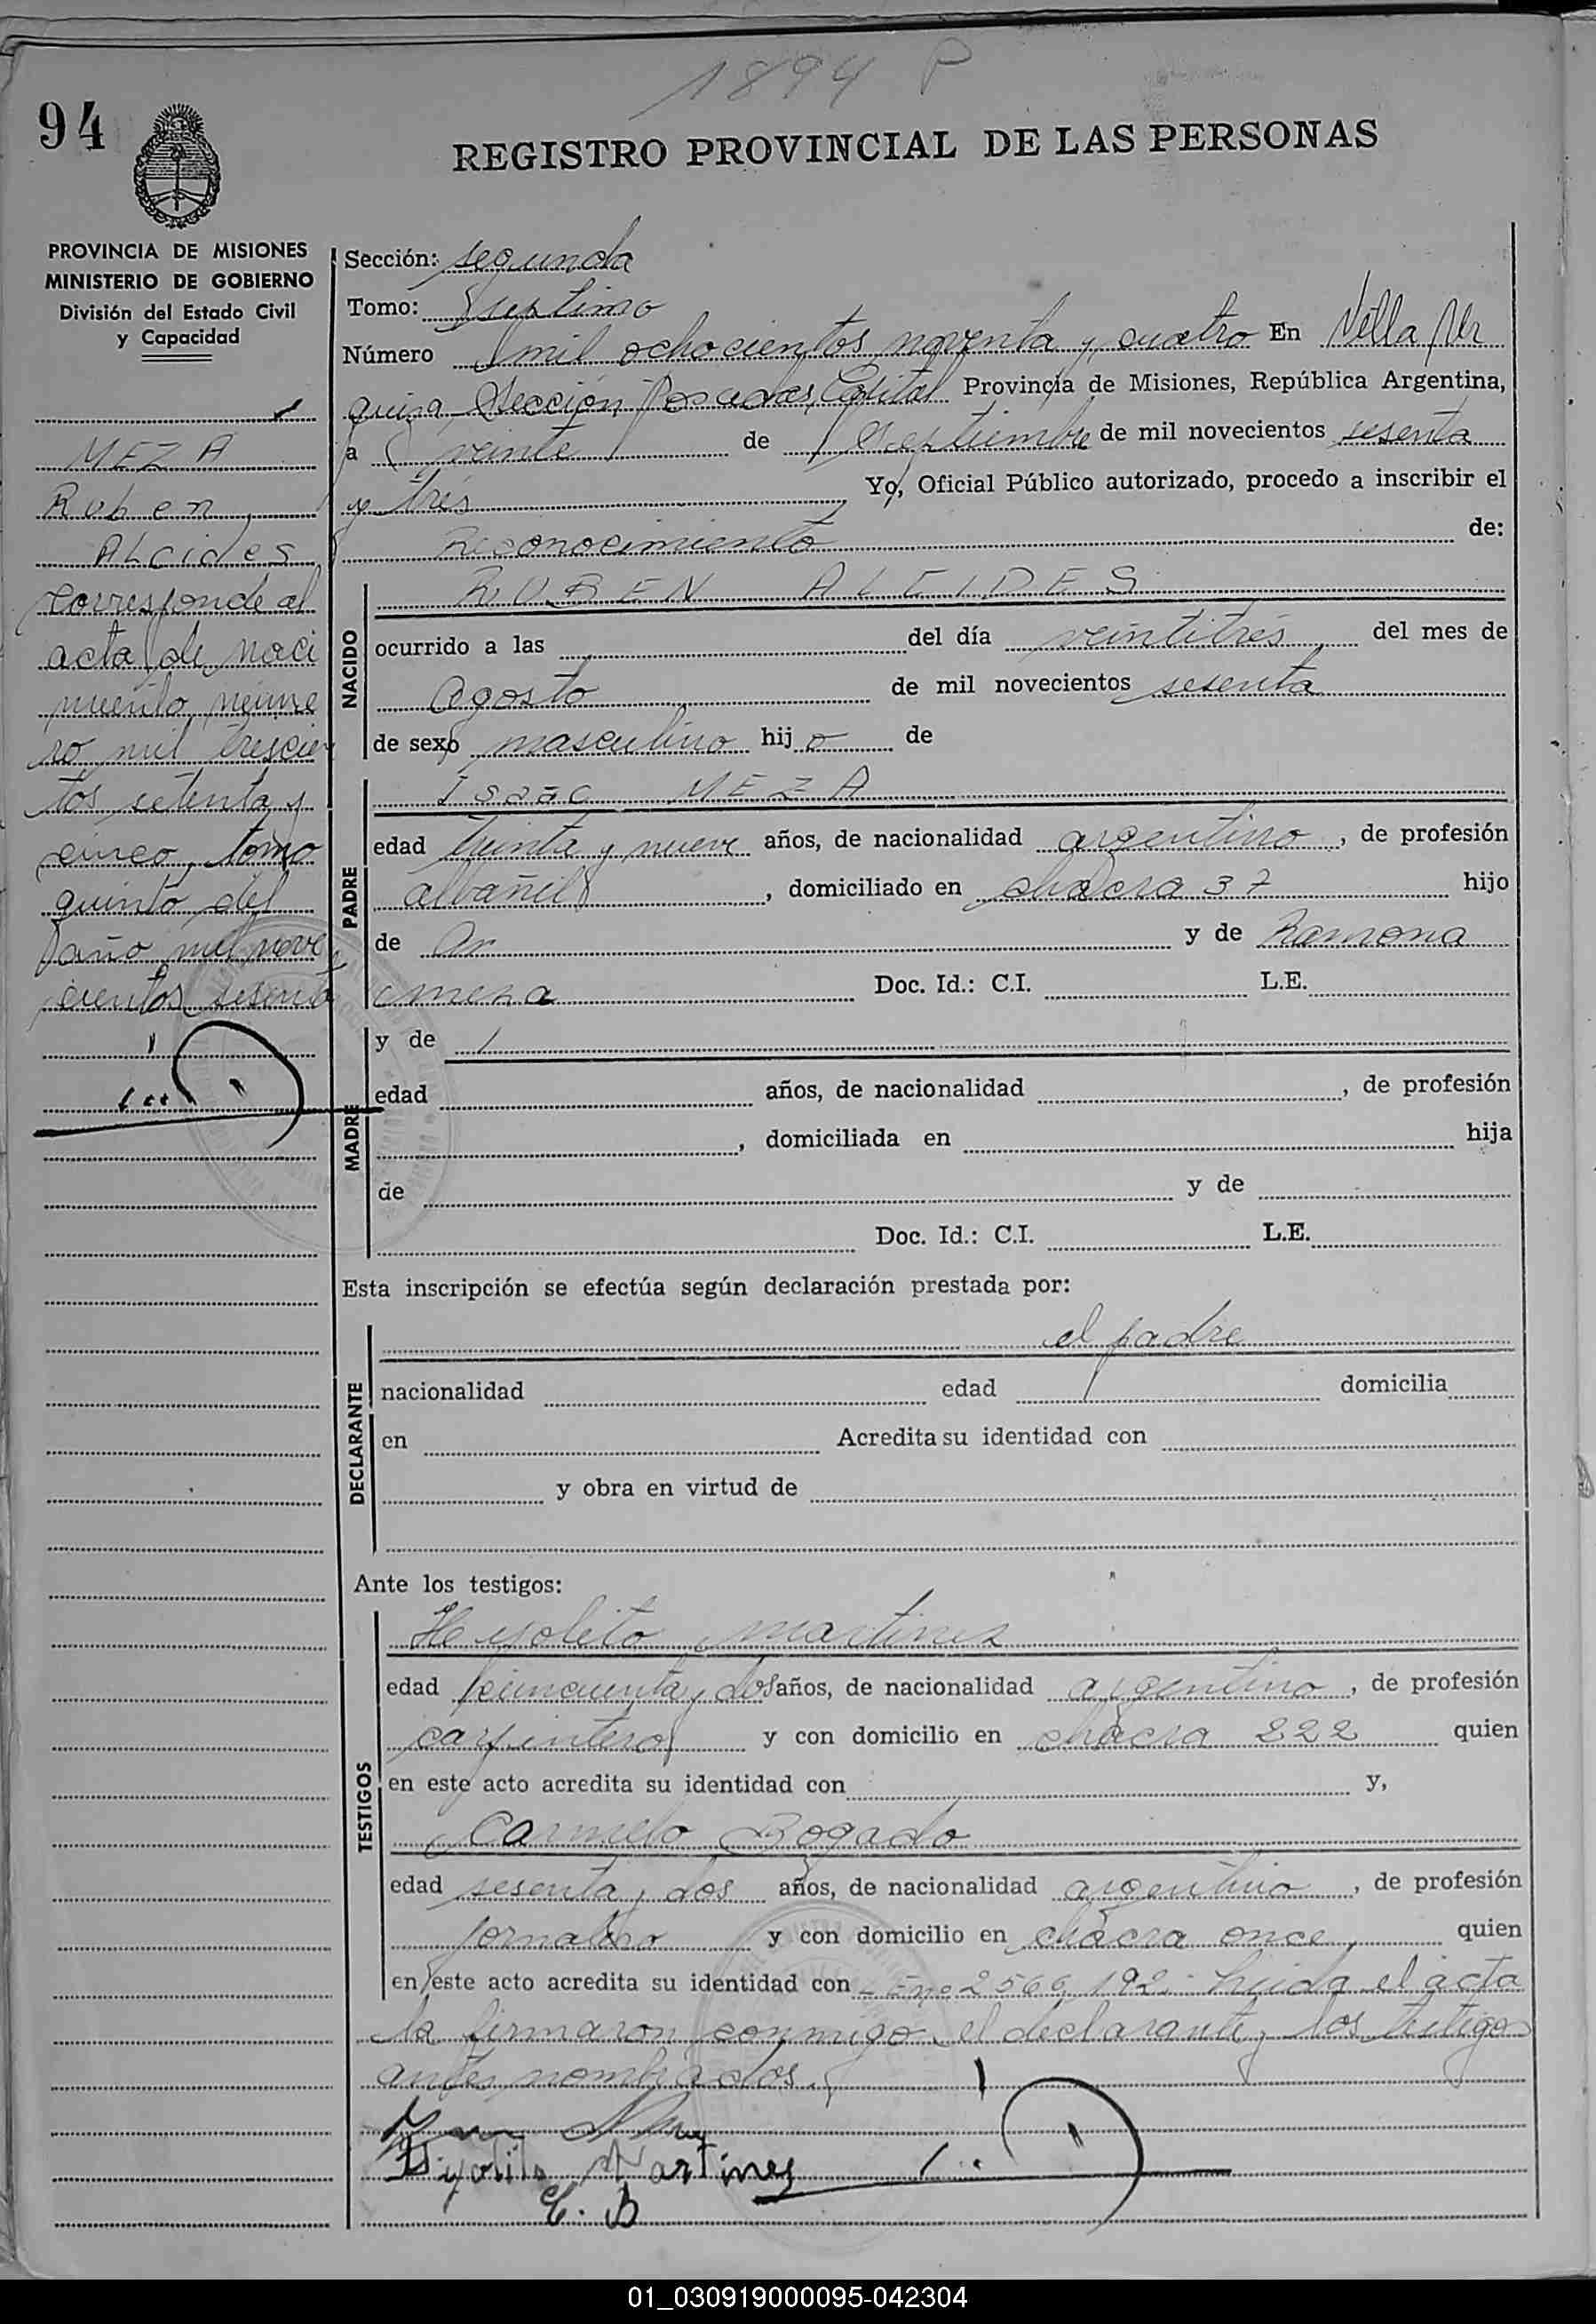 1894 P
94
REGISTRO PROVINCIAL DE LAS PERSONAS
PROVINCIA DE MISIONES
MINISTERIO DE GOBIERNO
División del Estado Civil
y Capacidad
MEZA
Ruben
ALcides
Corresponde al
acta de naci
miento núme
ro mil trescien
tos setenta y
cinco, tomo
quinto del
año mil nove
cientos sesenta
Sección: segunda
Tomo: septimo
Número mil ochocientos noventa y cuatro En Villa Ur
quiza, Sección Posadas, Capital Provincia de Misiones, República Argentina,
a veinte de Septiembre de mil novecientos sesenta
y tres Yo, Oficial Público autorizado, procedo a inscribir el
Reconocimiento de:
NACIDO
RUBEN ALCIDES
ocurrido a las del día veintitrés del mes de
Agosto de mil novecientos sesenta
de sexo masculino hijo de
PADRE
Isaac MEZA
edad treinta y nueve años, de nacionalidad argentino, de profesión
albañil, domiciliado en chacra 37 hijo
de y de Ramona
meza Doc. Id.: C.I. L.E.
MADRE
y de
edad años, de nacionalidad , de profesión
, domiciliada en hija
de y de
Doc. Id.: C.I. L.E.
Esta inscripción se efectúa según declaración prestada por:
DECLARANTE
el padre
nacionalidad edad domicilia
en Acredita su identidad con
y obra en virtud de
Ante los testigos:
TESTIGOS
Hiyolito Martinez
edad cincuenta y dos años, de nacionalidad argentino, de profesión
carpintero y con domicilio en chacra 222 quien
en este acto acredita su identidad con y,
Carmelo Bogado
edad sesenta y dos años, de nacionalidad argentino, de profesión
jornalero y con domicilio en chacra once, quien
en este acto acredita su identidad con 2566192. leida el acta
la firmaron conmigo el declarante y los testigos
antes nombrados.
Hiyolito Martines
C. B
01_030919000095-042304